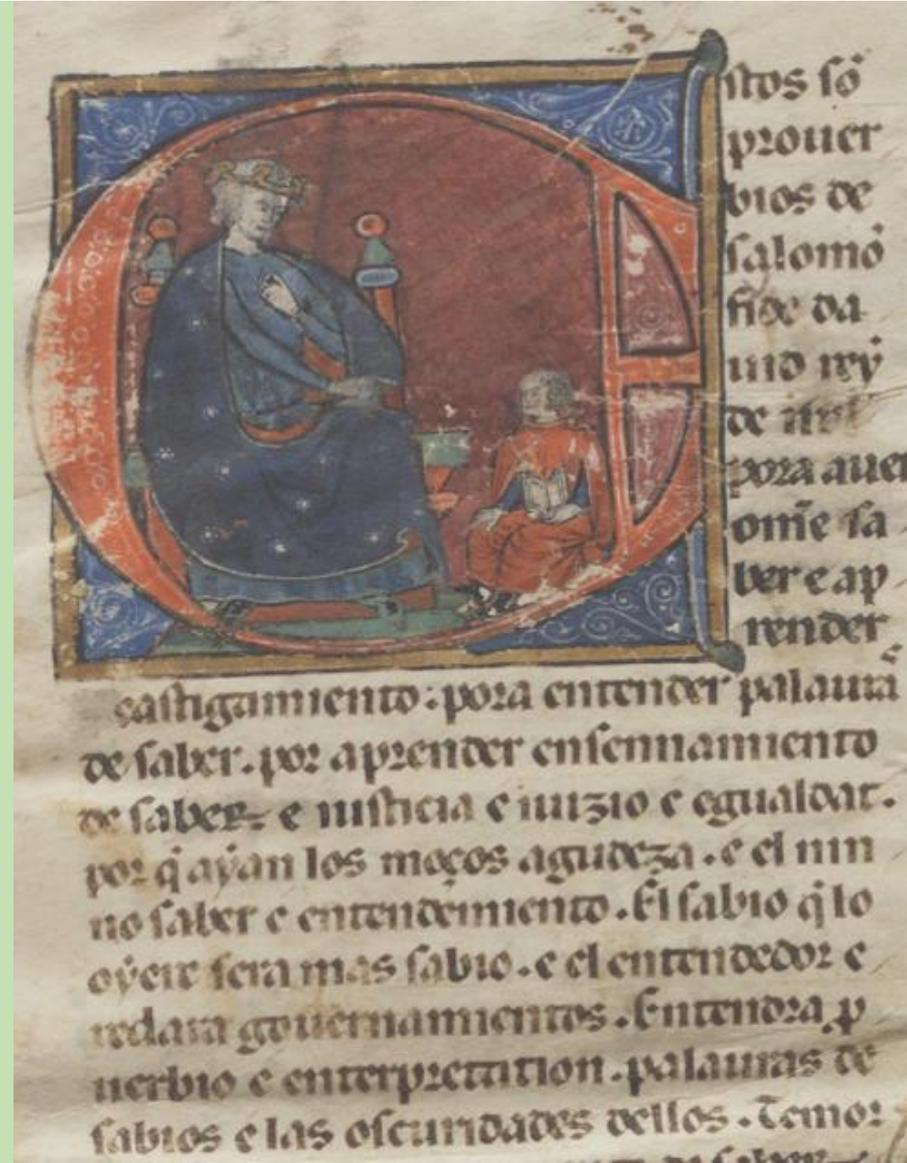 Estos sõ
prouer
bios de
salomõ
fi de da
uid reẏ
de isrl'
pora auer
om̃e sa
ber e ap
render
castigamiento : pora entender palaura
de saber . por aprender ensennamiento
de saber . e iusticia e iuizio e egualdat .
por q̃ aẏan los moços agudeza . e el nin
no saber e entendemiento . El sabio q̃ lo
oẏere sera mas sabio . e el entendedor e
redara gouernamientos . Entendra p̱
uerbio e enterpretation . palauras de
sabios e las oscuridades dellos . Temor